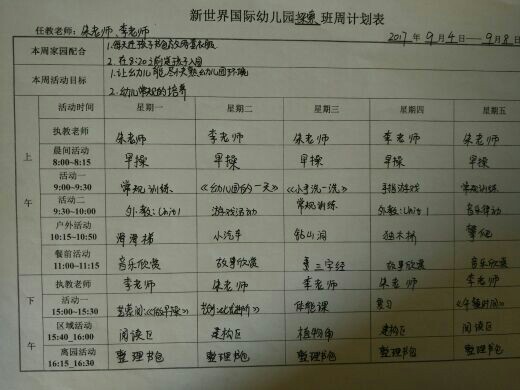 新世界国际幼儿园探索班周计划表
任教老师：朱老师、李老师 2017年9月4日——9月8日
本周家园配合 1.每天在孩子书包放两套衣服
2.在8:20之前送孩子入园
本周活动目标 1.让幼儿能尽快熟幼儿园环境
2.幼儿常规的培养
活动时间 星期一 星期二 星期三 星期四 星期五
上午
执教老师 朱老师 李老师 朱老师 李老师 朱老师
晨间活动 8:00~8:15 早操 早操 早操 早操 早操
活动一 9:00~9:30 常规训练 《幼儿园的一天》 《小手洗一洗》 手指游戏 常规训练
活动二 9:30~10:00 外教:Unit1 游戏活动 常规训练 外教:Unit1 音乐律动
户外活动 10:15~10:50 滑滑梯 小汽车 钻山洞 独木桥 攀爬
餐前活动 11:00~11:15 音乐欣赏 故事欣赏 三字经 故事欣赏 音乐欣赏
下午
执教老师 李老师 朱老师 李老师 朱老师 李老师
活动一 15:00~15:30 《做早操》 体能课 复习 《午餐时间》
区域活动 15:40_16:00 阅读区 建构区 植物角 建构区 阅读区
离园活动 16:15_16:30 整理书包 整理书包 整理书包 整理书包 整理书包